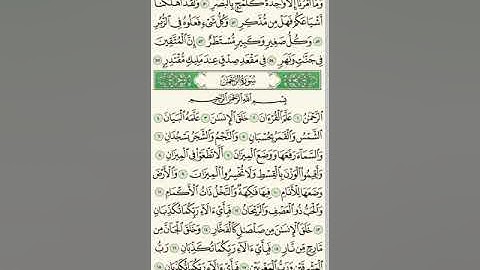 وَمَآ أَمْرُنَآ إِلَّا وَٰحِدَةٌ كَلَمْحٍۭ بِٱلْبَصَرِ ٥٠ وَلَقَدْ أَهْلَكْنَآ
أَشْيَاعَكُمْ فَهَلْ مِن مُّدَّكِرٍ ٥١ وَكُلُّ شَىْءٍ فَعَلُوهُ فِى ٱلزُّبُرِ
٥٢ وَكُلُّ صَغِيرٍ وَكَبِيرٍ مُّسْتَطَرٌ ٥٣ إِنَّ ٱلْمُتَّقِينَ
فِى جَنَّٰتٍ وَنَهَرٍ ٥٤ فِى مَقْعَدِ صِدْقٍ عِندَ مَلِيكٍ مُّقْتَدِرٍۭ ٥٥
سُورَةُ الرَّحْمَٰن
بِسْمِ ٱللَّهِ ٱلرَّحْمَٰنِ ٱلرَّحِيمِ
ٱلرَّحْمَٰنُ ١ عَلَّمَ ٱلْقُرْءَانَ ٢ خَلَقَ ٱلْإِنسَٰنَ ٣ عَلَّمَهُ ٱلْبَيَانَ ٤
ٱلشَّمْسُ وَٱلْقَمَرُ بِحُسْبَانٍ ٥ وَٱلنَّجْمُ وَٱلشَّجَرُ يَسْجُدَانِ ٦
وَٱلسَّمَآءَ رَفَعَهَا وَوَضَعَ ٱلْمِيزَانَ ٧ أَلَّا تَطْغَوْا۟ فِى ٱلْمِيزَانِ ٨
وَأَقِيمُوا۟ ٱلْوَزْنَ بِٱلْقِسْطِ وَلَا تُخْسِرُوا۟ ٱلْمِيزَانَ ٩ وَٱلْأَرْضَ
وَضَعَهَا لِلْأَنَامِ ١٠ فِيهَا فَٰكِهَةٌ وَٱلنَّخْلُ ذَاتُ ٱلْأَكْمَامِ ١١
وَٱلْحَبُّ ذُو ٱلْعَصْفِ وَٱلرَّيْحَانُ ١٢ فَبِأَىِّ ءَالَآءِ رَبِّكُمَا تُكَذِّبَانِ
١٣ خَلَقَ ٱلْإِنسَٰنَ مِن صَلْصَٰلٍ كَٱلْفَخَّارِ ١٤ وَخَلَقَ ٱلْجَآنَّ مِن
مَّارِجٍ مِّن نَّارٍ ١٥ فَبِأَىِّ ءَالَآءِ رَبِّكُمَا تُكَذِّبَانِ ١٦ رَبُّ
ٱلْمَشْرِقَيْنِ وَرَبُّ ٱلْمَغْرِبَيْنِ ١٧ فَبِأَىِّ ءَالَآءِ رَبِّكُمَا تُكَذِّبَانِ